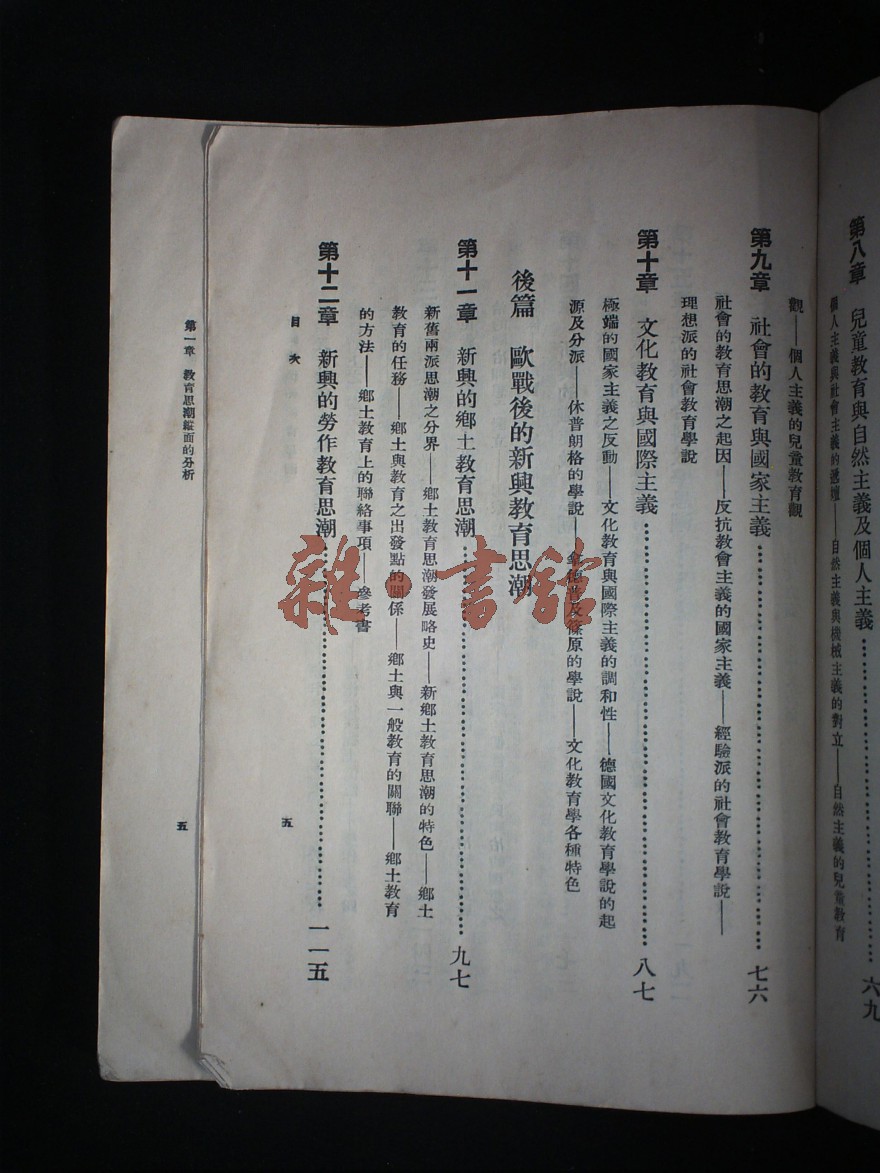 第八章　兒童教育與自然主義及個人主義……六九
個人主義與社會主義的——自然主義與機械主義的對立——自然主義的兒童教育
觀——個人主義的兒童教育觀
第九章　社會的教育與國家主義……七六
社會的教育思潮之起因——反抗教會主義的國家主義——經驗派的社會教育學說——
理想派的社會教育學說
第十章　文化教育與國際主義……八七
極端的國家主義之反動——文化教育與國際主義的調和性——德國文化教育學說的起
源及分派——休普朗格的學說——拿德普及篠原的學說——文化教育學各種特色
後篇　歐戰後的新興教育思潮
第十一章　新興的鄉土教育思潮……九七
新舊兩派思潮之分界——鄉土教育思潮發展略史——新鄉土教育思潮的特色——鄉土
教育的任務——鄉土與教育之出發點的關係——鄉土與一般教育的關聯——鄉土教育
的方法——鄉土教育上的聯絡事項——參考書
第十二章　新興的勞作教育思潮……一一五
目次
五
第一章　教育思潮縱面的分析
五
雜·書館